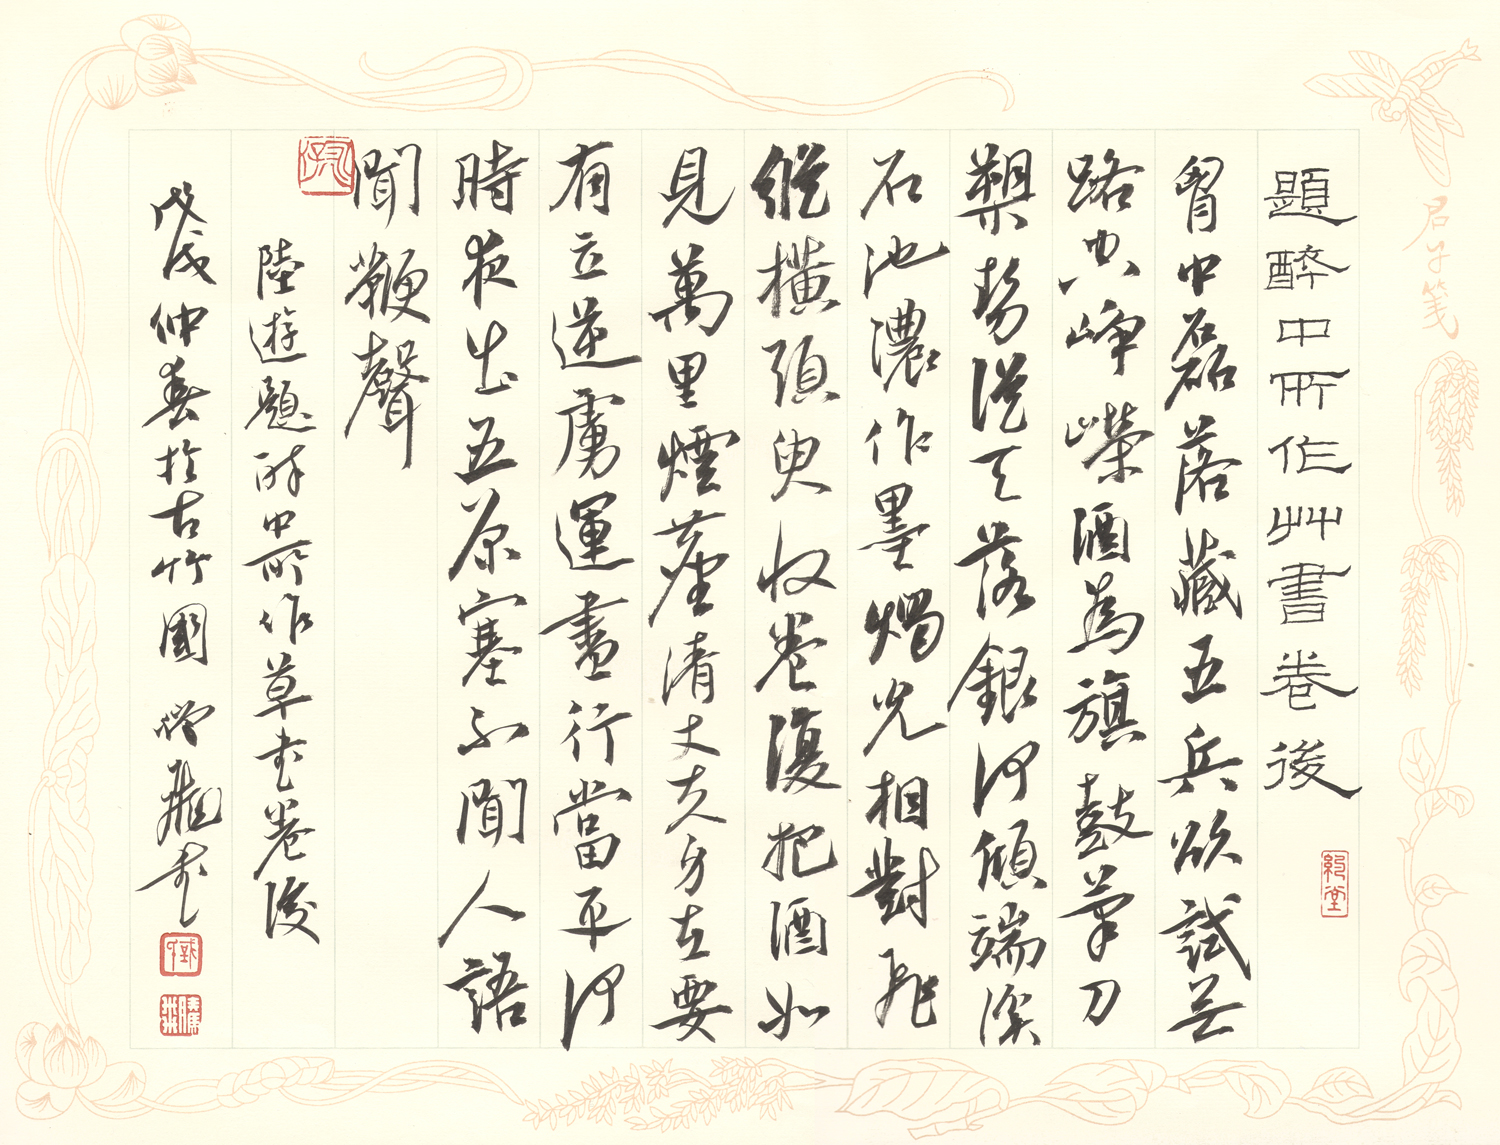 君子箋
題醉中所作艸書卷後
約堂
胷中磊落藏五兵欲試無
路空崢嶸酒為旗鼓筆刀
槊勢從天落銀河傾端溪
石池濃作墨燭光相對飛
縱橫須臾收卷復把酒如
見萬里煙塵清丈夫身在要
有立逆虜運盡行當平何
時夜出五原塞不聞人語
聞鞭聲
陸遊題醉中所作草書卷後
戊戌仲春於古竹園